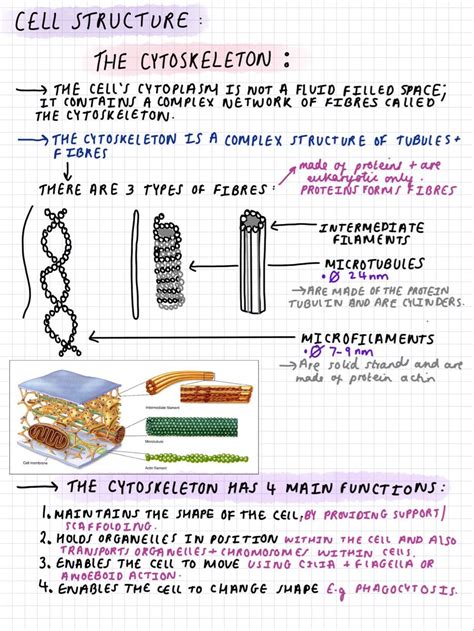 CELL STRUCTURE :
THE CYTOSKELETON :
→ THE CELL'S CYTOPLASM IS NOT A FLUID FILLED SPACE;
IT CONTAINS A COMPLEX NETWORK OF FIBRES CALLED
THE CYTOSKELETON.
→ THE CYTOSKELETON IS A COMPLEX STRUCTURE OF TUBULES +
FIBRES
made of proteins + are
eukaryotic only.
PROTEINS FORMS FIBRES
THERE ARE 3 TYPES OF FIBRES :
INTERMEDIATE
FILAMENTS
MICROTUBULES
• Ø 24nm
→ ARE MADE OF THE PROTEIN
TUBULIN AND ARE CYLINDERS.
MICROFILAMENTS
• Ø 7-9nm
→ Are solid strands and are
made of protein actin
Intermediate filament
Microtubule
Actin filament
Cell membrane
→ THE CYTOSKELETON HAS 4 MAIN FUNCTIONS :
1. MAINTAINS THE SHAPE OF THE CELL, BY PROVIDING SUPPORT/
SCAFFOLDING.
2. HOLDS ORGANELLES IN POSITION WITHIN THE CELL AND ALSO
TRANSPORTS ORGANELLES + CHROMOSOMES WITHIN CELLS.
3. ENABLES THE CELL TO MOVE USING CILIA + FLAGELLA OR
AMOEBOID ACTION.
4. ENABLES THE CELL TO CHANGE SHAPE E.g PHAGOCYTOSIS.